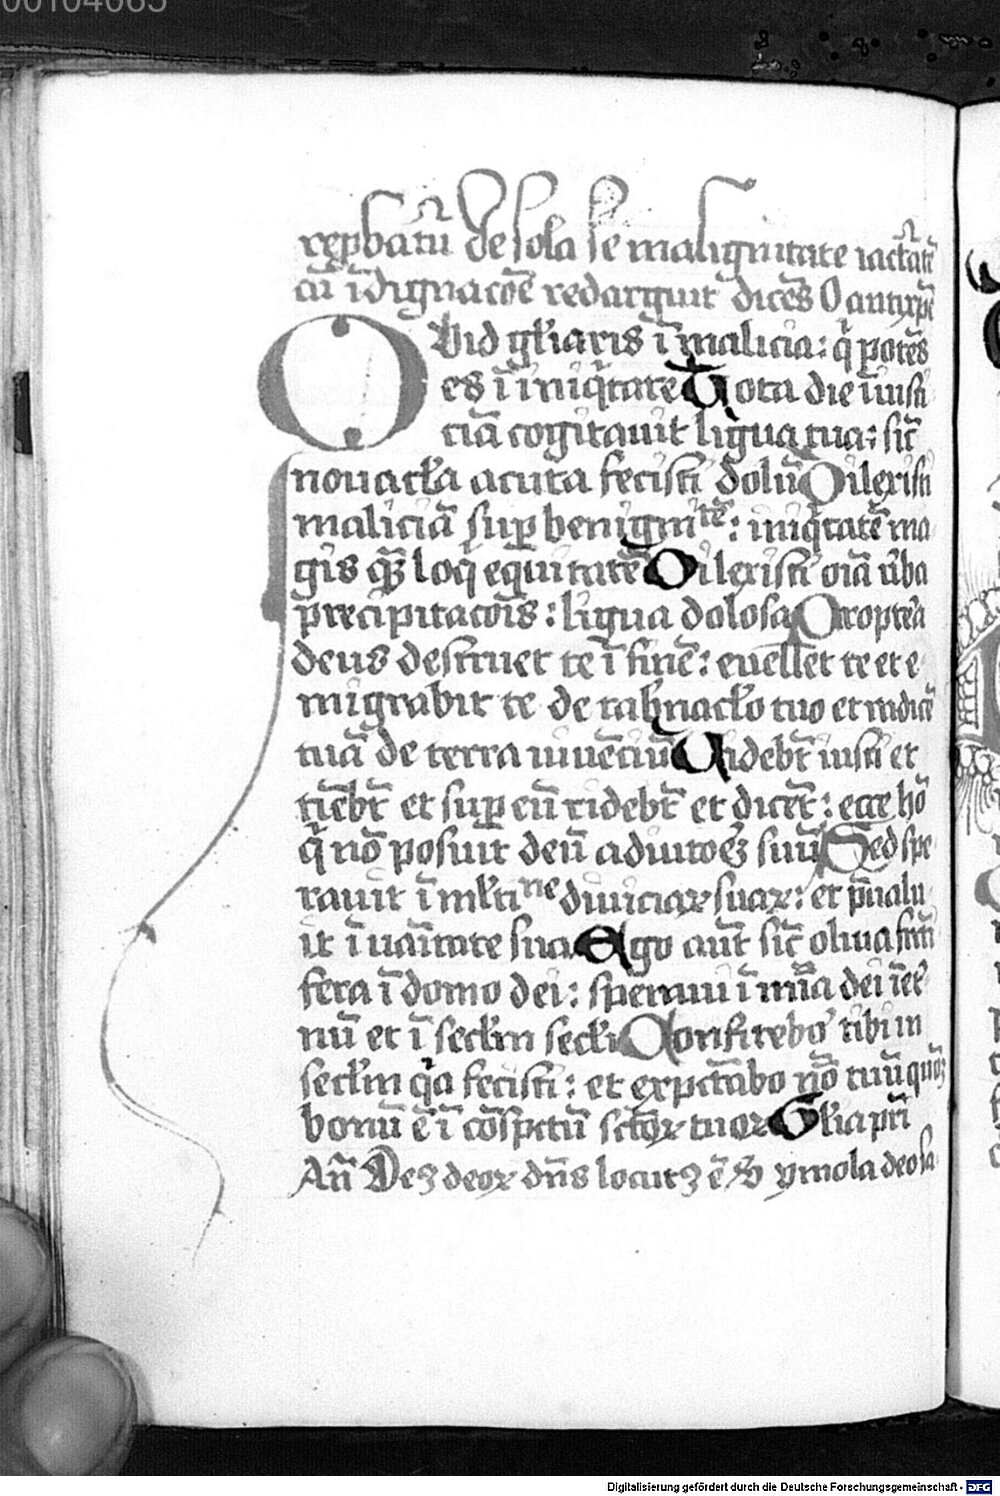 00104065
rep̱batū de sola se malignitate iactātē
cū īdignacōē redarguit dicēs O antixpē
QVid gl̄iaris ī malicia: q̄ potēs
es ī iniq̄tate Tota die īiusti
ciā cogitauit līgua tua: sic̄
nouacl̄a acuta fecisti dolū Dilexisti
maliciā sup̱ benigniᵗē: iniq̄tatē ma
gis qꝫ̄ loq̄ equitatē Dilexisti oīa ūba
precipitacōis: līgua dolosa Propteā
deus destruet te ī finē: euellet te et e
migrabit te de tab̄nacl̄o tuo et radicē
tuā de terra uiuēciū Uidebt̄ iusti et
tiēbt̄ et sup̱ eū ridebt̄ et dicēt: ecce hō
q̄ nō posuit deū adiutoēꝫ suū Sed spe
rauit ī ml̄tiⁿᵉ diuiciaꝝ suaꝝ: et p̄ualu
it ī uaītate sua Ego aut̄ sic̄ oliua fruti
fera ī domo dei: speraui ī mīa dei īet̄
nū et ī secl̄m secl̄i Confitebor tibi in
secl̄m q̄a fecisti: et exp̱ctabo nō tuū qm̄
bonū ē ī cōsp̱ctū sctōꝝ tuoꝝ Gl̄ia pr̄i
An̄ Deꝫ deoꝝ dn̄s locutꝫ ē
Digitalisierung gefördert durch die Deutsche Forschungsgemeinschaft - DFG